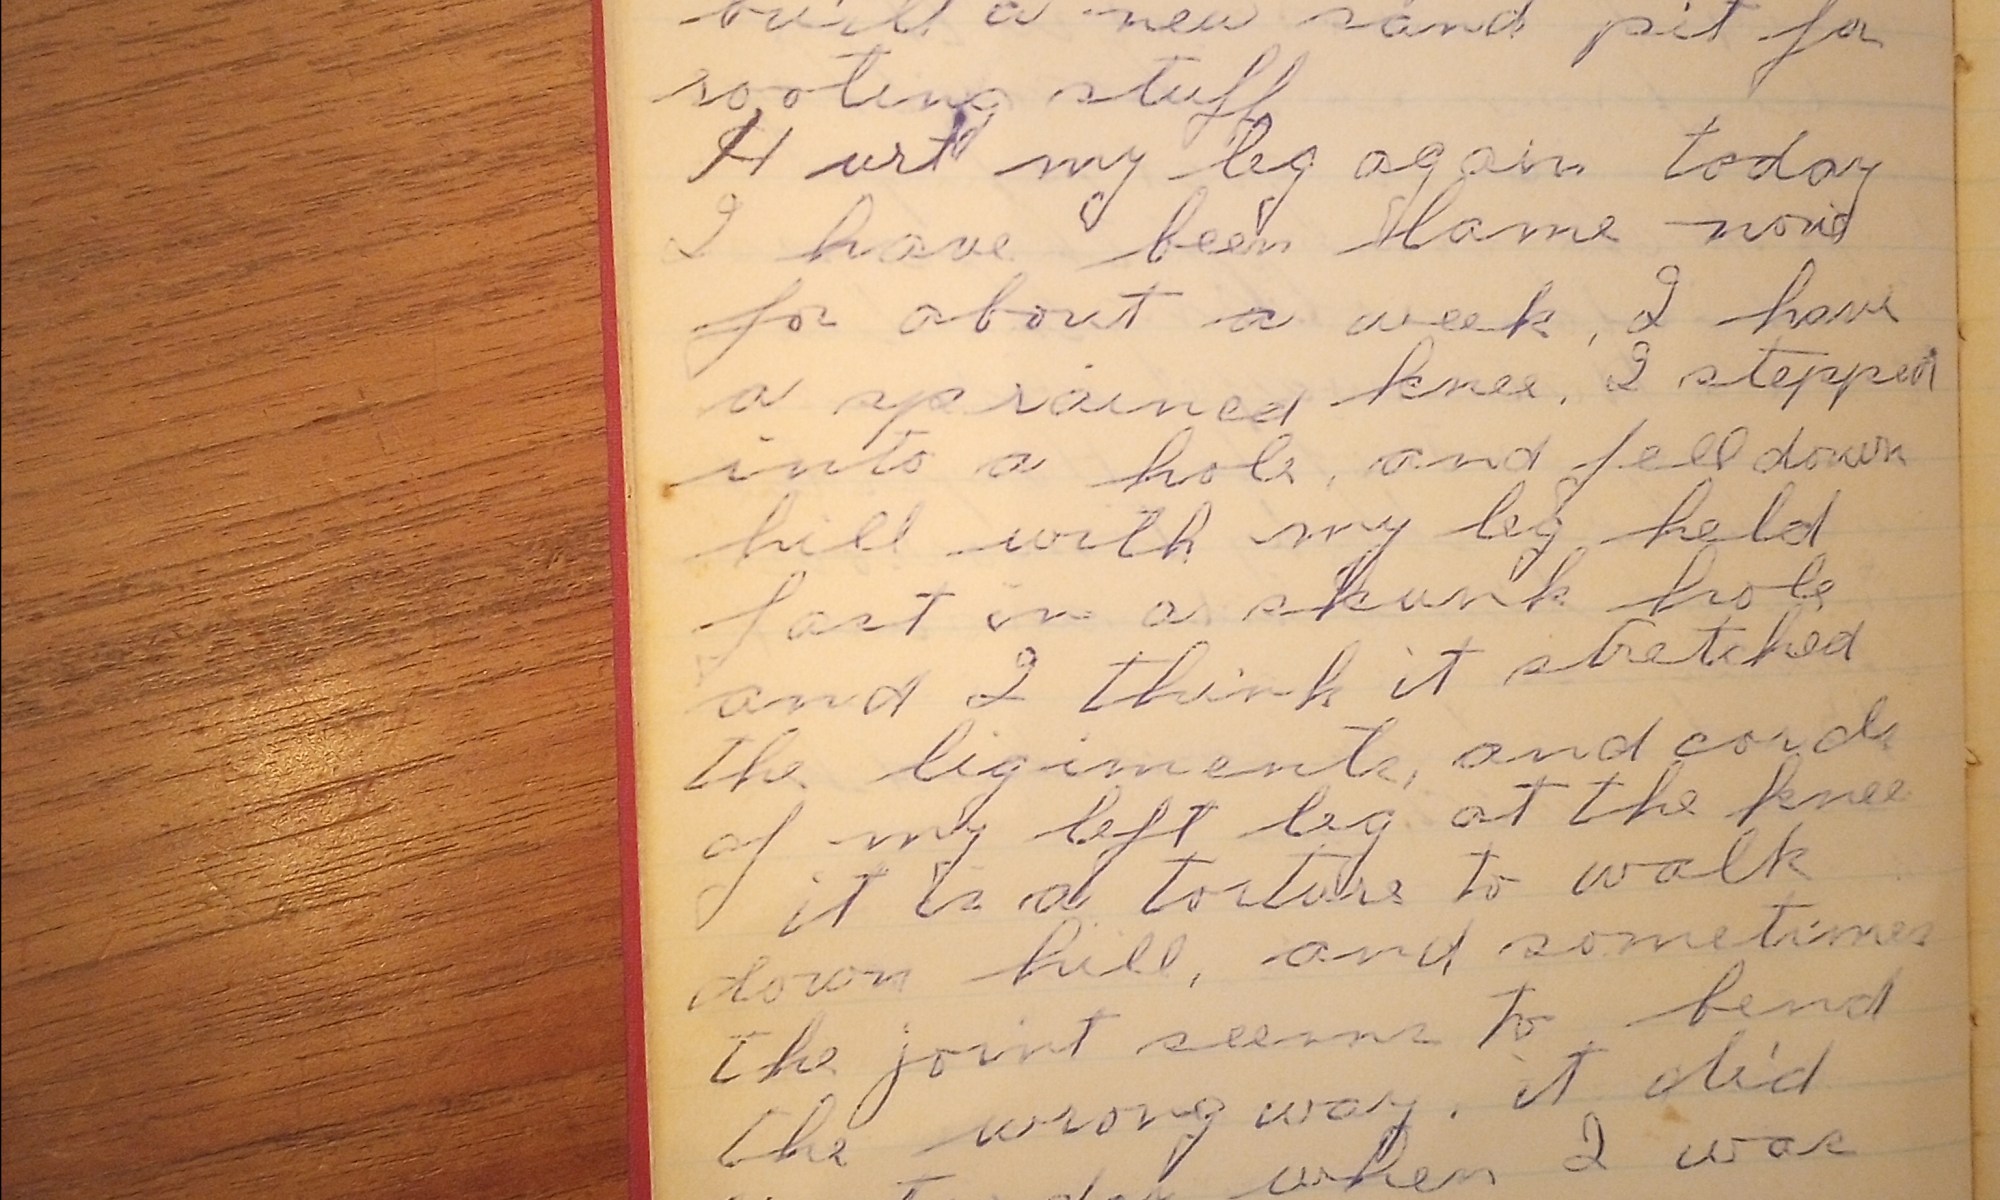 built a new sand pit for
rooting stuff
Hurt my leg again today
I have been lame now
for about a week, I have
a sprained knee, I stepped
into a hole, and fell down
hill with my leg held
fast in a skunk hole
and I think it stretched
the ligiments, and cords
of my left leg at the knee
it is a torture to walk
down hill, and sometimes
the joint seems to bend
the wrong way. it did
when I was